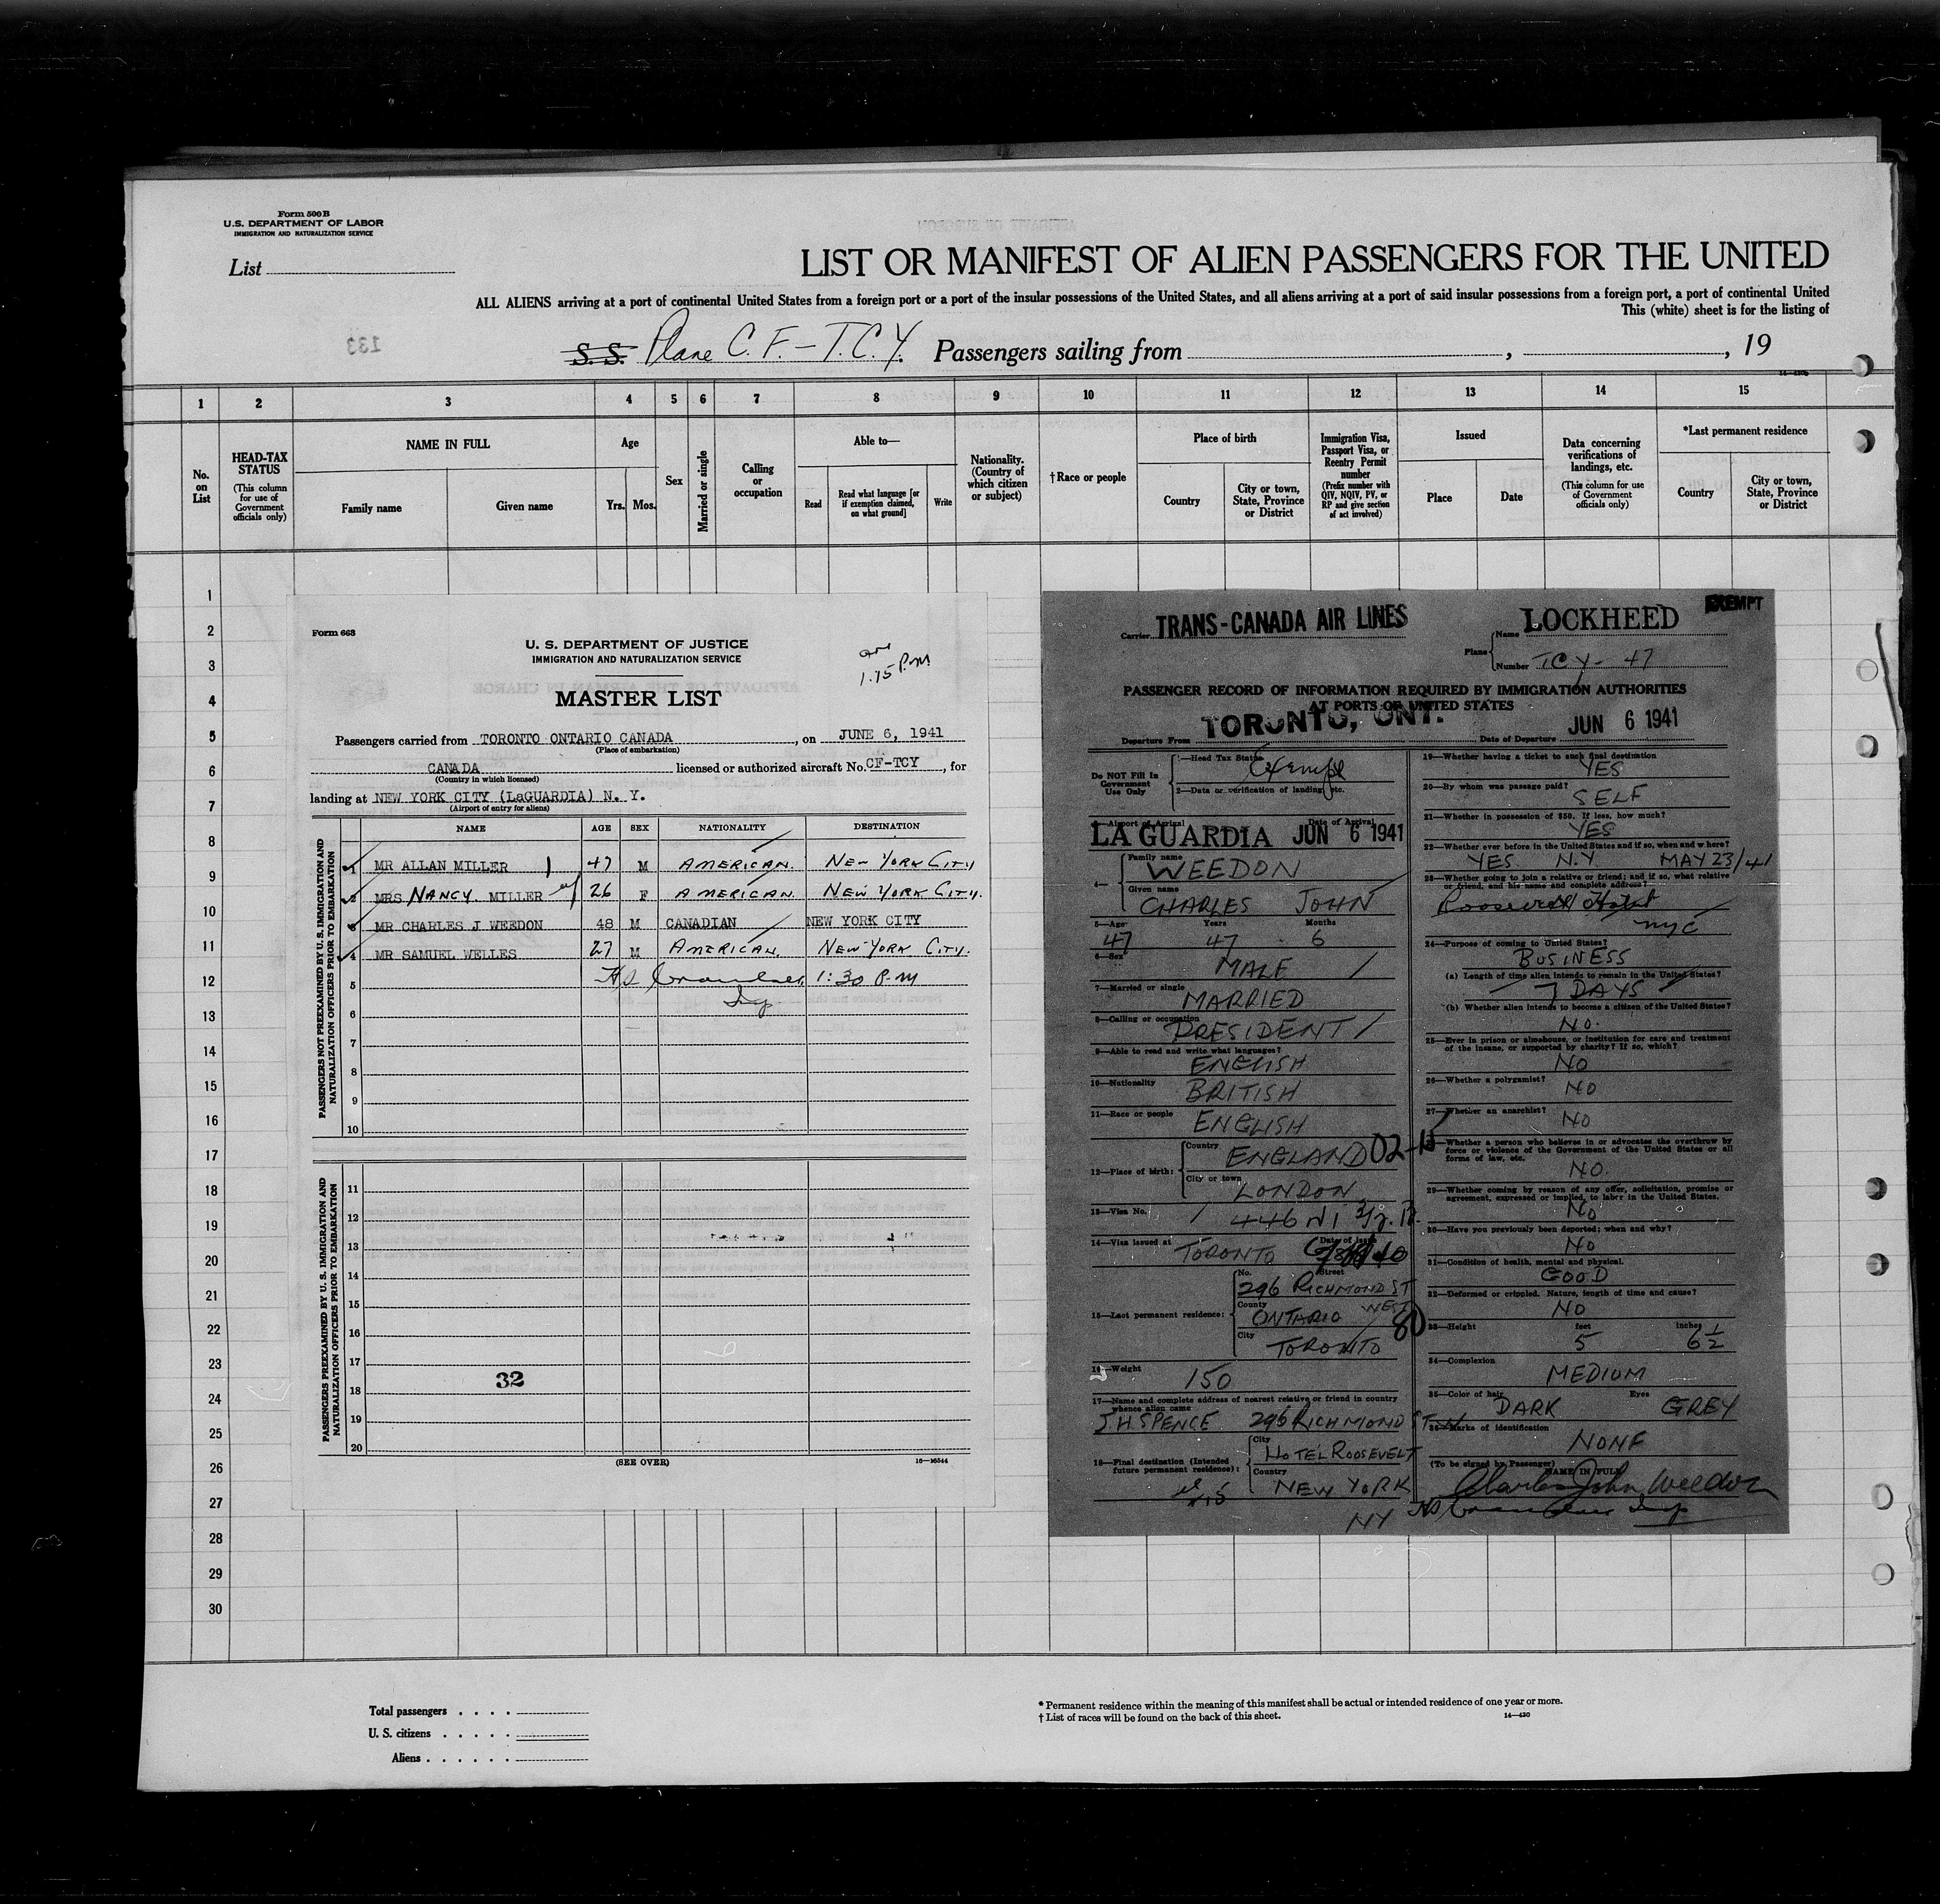 Form 500 B
U.S. DEPARTMENT OF LABOR
IMMIGRATION AND NATURALIZATION SERVICE
List
LIST OR MANIFEST OF ALIEN PASSENGERS FOR THE UNITED
ALL ALIENS arriving at a port of continental United States from a foreign port or a port of the insular possessions of the United States, and all aliens arriving at a port of said insular possessions from a foreign port, a port of continental United
This (white) sheet is for the listing of
133
S.S. Plane C.F.-T.C.Y. Passengers sailing from , , 19
1 2 3 4 5 6 7 8 9 10 11 12 13 14 15
No. on List
HEAD-TAX STATUS
(This column for use of Government officials only)
NAME IN FULL
Family name Given name
Age
Yrs. Mos.
Sex
Married or single
Calling or occupation
Able to—
Read
Read what language [or if exemption claimed, on what ground]
Write
Nationality. (Country of which citizen or subject)
† Race or people
Place of birth
Country
City or town, State, Province or District
Immigration Visa, Passport Visa, or Reentry Permit number
(Prefix number with QIV, NQIV, PV, or RP and give section of act involved)
Issued
Place Date
Data concerning verifications of landings, etc.
(This column for use of Government officials only)
*Last permanent residence
Country
City or town, State, Province or District
1
2
3
4
5
6
7
8
9
10
11
12
13
14
15
16
17
18
19
20
21
22
23
24
25
26
27
28
29
30
Form 663
U. S. DEPARTMENT OF JUSTICE
IMMIGRATION AND NATURALIZATION SERVICE
1.15 P.M
MASTER LIST
Passengers carried from TORONTO ONTARIO CANADA , on JUNE 6, 1941
(Place of embarkation)
CANADA licensed or authorized aircraft No. CF-TCY , for
(Country in which licensed)
landing at NEW YORK CITY (LaGUARDIA) N. Y.
(Airport of entry for aliens)
NAME AGE SEX NATIONALITY DESTINATION
PASSENGERS NOT PREEXAMINED BY U. S. IMMIGRATION AND NATURALIZATION OFFICERS PRIOR TO EMBARKATION
1 MR ALLAN MILLER 47 M AMERICAN. NEW YORK CITY
2 MRS NANCY MILLER 26 F AMERICAN. NEW YORK CITY.
3 MR CHARLES J WEEDON 48 M CANADIAN NEW YORK CITY
4 MR SAMUEL WELLES 27 M AMERICAN. NEW YORK CITY.
5 1:30 P.M
6
7
8
9
10
PASSENGERS PREEXAMINED BY U. S. IMMIGRATION AND NATURALIZATION OFFICERS PRIOR TO EMBARKATION
11
12
13
14
15
16
17
32
18
19
20
(SEE OVER) 16—16544
EXEMPT
Carrier TRANS-CANADA AIR LINES
Plane Name LOCKHEED
Number TCY- 47
PASSENGER RECORD OF INFORMATION REQUIRED BY IMMIGRATION AUTHORITIES
AT PORTS OF UNITED STATES
Departure From TORONTO, ONT. Date of Departure JUN 6 1941
Do NOT Fill In Government Use Only
1—Head Tax Status Exempt
2—Data or verification of landing, etc.
3—Airport of Arrival LA GUARDIA Date of Arrival JUN 6 1941
4— Family name WEEDON
Given name CHARLES JOHN
5—Age 47 Years 47 Months 6
6—Sex MALE
7—Married or single MARRIED
8—Calling or occupation PRESIDENT
9—Able to read and write what languages? ENGLISH
10—Nationality BRITISH
11—Race or people ENGLISH
12—Place of birth: Country ENGLAND
City or town LONDON
13—Visa No. 446
14—Visa issued at TORONTO Date of Issue
15—Last permanent residence: No. Street 296 RICHMOND ST WEST
County ONTARIO
80
City TORONTO
16—Weight 150
17—Name and complete address of nearest relative or friend in country whence alien came
J.H SPENCE 296 RICHMOND ST W
18—Final destination (Intended future permanent residence): City HOTEL ROOSEVELT
Country NEW YORK
NY
19—Whether having a ticket to such final destination YES
20—By whom was passage paid? SELF
21—Whether in possession of $50. If less, how much? YES
22—Whether ever before in the United States and if so, when and where?
YES N.Y. MAY 23/41
23—Whether going to join a relative or friend; and if so, what relative or friend, and his name and complete address?
Roosevelt Hotel
nyc
24—Purpose of coming to United States? BUSINESS
(a) Length of time alien intends to remain in the United States? 7 DAYS
(b) Whether alien intends to become a citizen of the United States? NO.
25—Ever in prison or almshouse, or institution for care and treatment of the insane, or supported by charity? If so, which? NO
26—Whether a polygamist? NO
27—Whether an anarchist? NO
28—Whether a person who believes in or advocates the overthrow by force or violence of the Government of the United States or all forms of law, etc. NO.
29—Whether coming by reason of any offer, solicitation, promise or agreement, expressed or implied, to labor in the United States. NO
30—Have you previously been deported; when and why? NO
31—Condition of health, mental and physical. GOOD
32—Deformed or crippled. Nature, length of time and cause? NO
33—Height feet 5 inches 6½
34—Complexion MEDIUM
35—Color of hair DARK Eyes GREY
36—Marks of identification NONE
(To be signed by Passenger) NAME IN FULL
Charles John Weedon
Total passengers
U. S. citizens
Aliens
* Permanent residence within the meaning of this manifest shall be actual or intended residence of one year or more.
† List of races will be found on the back of this sheet. 14—430